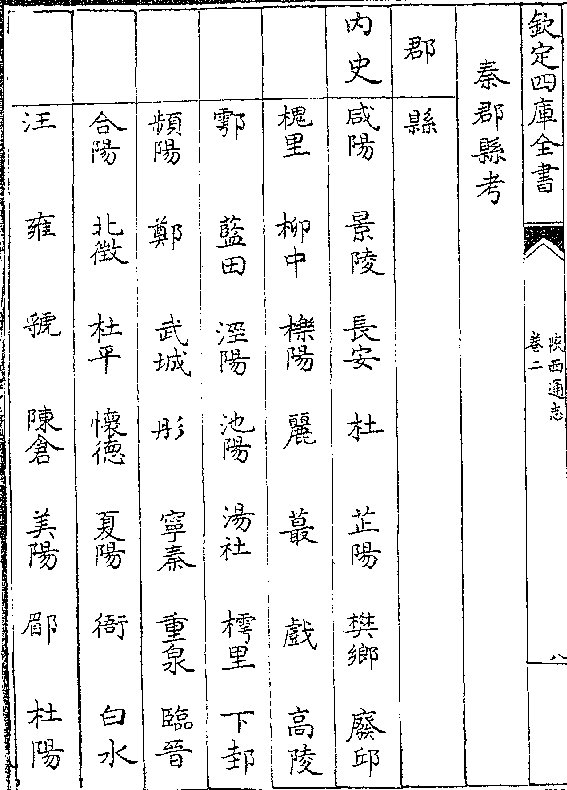 欽定四庫全書
陝西通志
卷二
八
秦郡縣考
郡 縣
内史 咸陽 景陵 長安 杜 芷陽 樊鄉 廢邱
槐里 柳中 櫟陽 麗 蕞 戲 高陵
鄠 藍田 涇陽 池陽 湯社 樗里 下邽
頻陽 鄭 武城 彤 寧秦 重泉 臨晉
合陽 北徵 杜平 懷德 夏陽 衙 白水
汪 雍 虢 陳倉 美陽 郿 杜陽